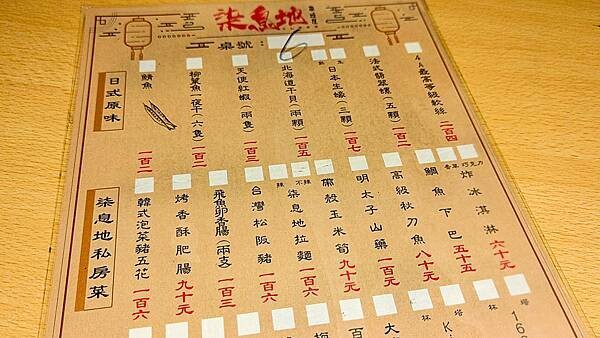 柒息地
桌號：6
4A最高等級軟絲 二百四
法式翡翠螺（五顆） 一百二
熟 生
日本生蠔（三顆） 一百七
北海道干貝（兩顆） 一百五
天使紅蝦（兩隻） 一百三
柳葉魚一夜干（六隻） 一百二
鯖魚 一百二
日式原味
香草 巧克力
炸冰淇淋 六十元
鯛魚下巴 五十五
高級秋刀魚 八十元
明太子山藥 一百元
帶殼玉米筍 九十元
辣 不辣
柒息地拉麵 一百六
台灣松阪豬 一百六
飛魚卵香腸（兩支） 一百三
烤香酥肥腸 九十元
韓式泡菜豬五花 一百六
柒息地私房菜
塔
16
林
塔
K
林
大
百
梅